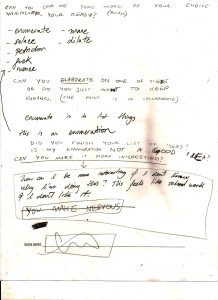 CAN YOU GIVE ME SOME WORDS OF YOUR CHOICE
WHENEVER YOUR READY? (PLEASE)
- enumerate - mane
- solace - dilate
-
- fuck
- home
CAN YOU ELABORATE ON ONE OF THESE
OR DO YOU JUST WANT TO KEEP
GOING? (THE POINT IS IN COLLABORATING)
enumerate is to list things
this is an enumeration
DID YOU FINISH YOUR LIST OF IDEAS?
IS MY ENUMERATION NOT A GOOD IDEA?
CAN YOU MAKE IT MORE INTERESTING?
how can I be more interesting if I don't know
why I'm doing this? This feels like school work
& I don't like it
YOU MAKE NERVOUS